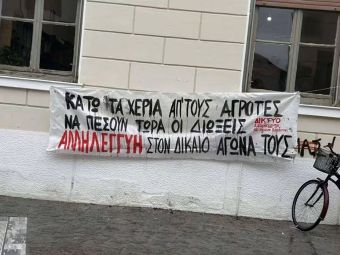 ΚΑΤΩ ΤΑ ΧΕΡΙΑ ΑΠ'ΤΟΥΣ ΑΓΡΟΤΕΣ
ΝΑ ΠΕΣΟΥΝ ΤΩΡΑ ΟΙ ΔΙΩΞΕΙΣ
ΔΙΚΤΥΟ
ΑΛΛΗΛΕΓΓΥΗ ΣΤΟΝ ΔΙΚΑΙΟ ΑΓΩΝΑ ΤΟΥΣ